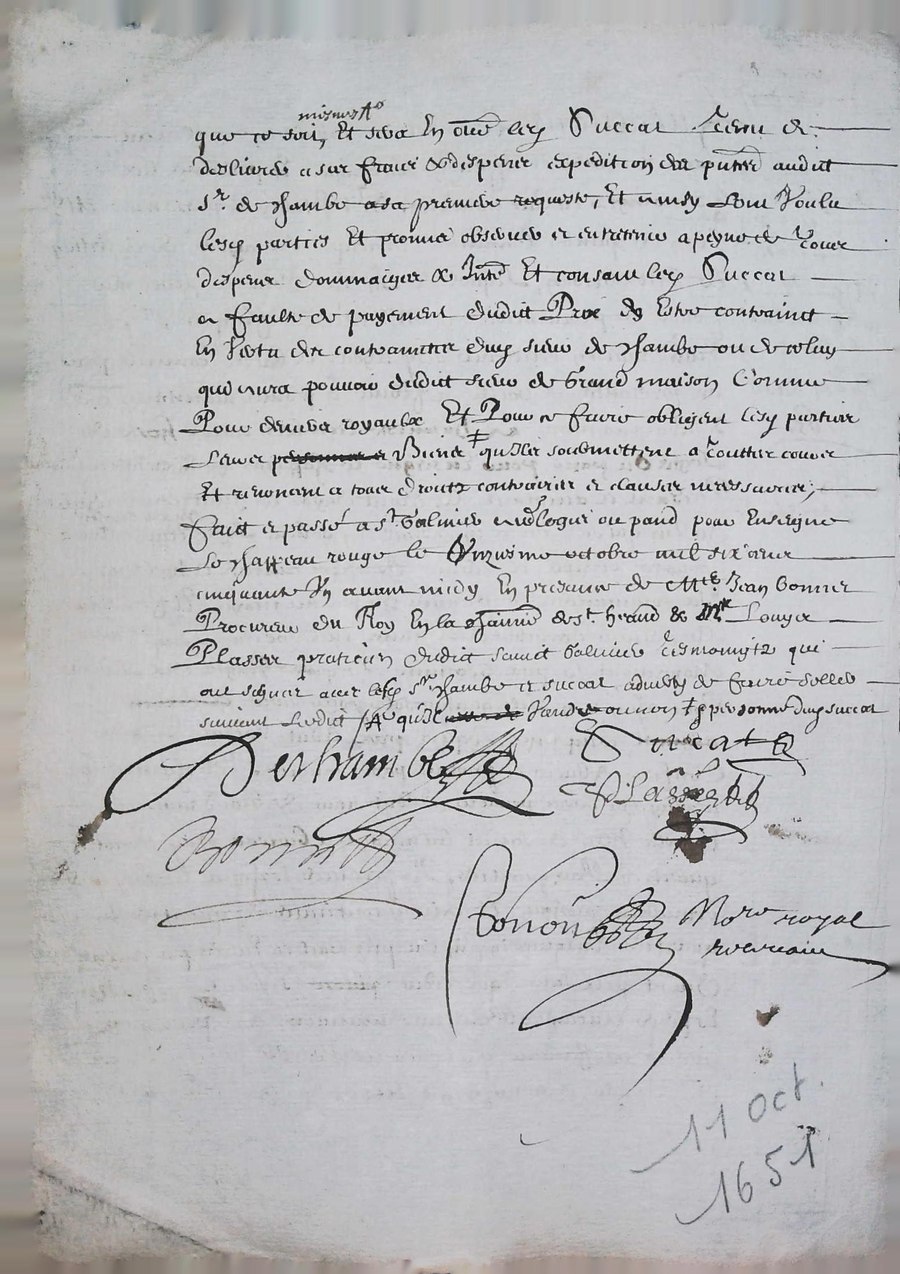 que ce soit, Et sera En oultre ledt Succat tenu de
deslivrer a ses fraicz & despens expedition des pntes audict
Sr. de Chambe a sa premiere requeste, Et ainsy l'ont Voulu
lesdt parties Et promis observer et entretenir a peyne de tous
despens dommaiges & Intz Et consant ledt Succat
a faulte de payement dudict Prix dy Estre contrainct
En Vertu des contrainctes dudt sieur de Chambe ou de celuy
qui aura pouvoir dudict sieur de Grand maison Comme
Pour deniers royaulx Et Pour ce faire obligent lesdt parties
Leurs personnes et Biens ǂ quilz soubmettent a toutes cours
Et renoncent a tous droictz contraires et clauses necessaires,
faict et passé a St Galmier au logis ou pand pour Enseigne
Le Chappeau rouge le Unziesme octobre mil six cens
cinquante Un avant midy En presance de Mtre Jean Bonnet
Procureur du Roy En la de St. heand & Mre Louys
Plasse praticien dudict sainct Galmier tesmoingtz qui
ont signé avec lesdt Srs Chambe et Succat advertis de faire seller
suivant Ledict ou non ǂ personne dudt Succat
Deschambe
Succat
Plasse
Bonnet
Nore royal
11 Oct.
1651